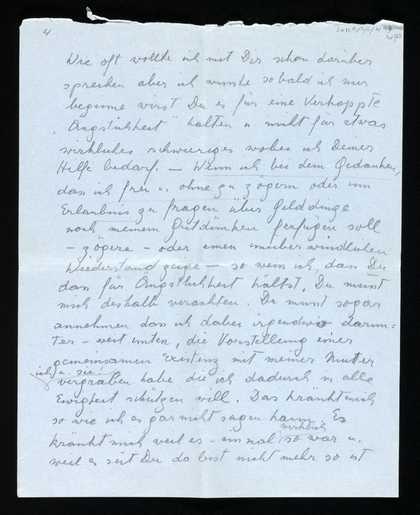 4
Wie oft wollte ich mit Dir schon darüber
sprechen aber ich wusste sobald ich nur
beginne wirst Du es für eine verkappte
"Ängstlichkeit" halten u. nicht für etwas
wirklich schwieriges wobei ich Deiner
Hilfe bedarf. — Wenn ich bei dem Gedanken,
dass ich frei u. ohne zu zögern oder um
Erlaubnis zu fragen über Gelddinge
nach meinem Gutdünken verfügen soll
– zögere – oder einen unüberwindlichen
Wiederstand zeige — so weiss ich, dass Du
dass für Ängstlichkeit hältst, Du musst
mich deshalb verachten. Du musst sogar
annehmen dass ich dabei irgendwo darun-
ter – weit unten, die Vorstellung einer
gemeinsamen Existenz mit meiner Mutter
ich u. sie
vergraben habe die ich dadurch in alle
Ewigkeit schützen will. Das kränkt mich
so wie ich es gar nicht sagen kann. Es
kränkt mich weil es – einmal wirklich so war u.
weil es seit Du da bist nicht mehr so ist